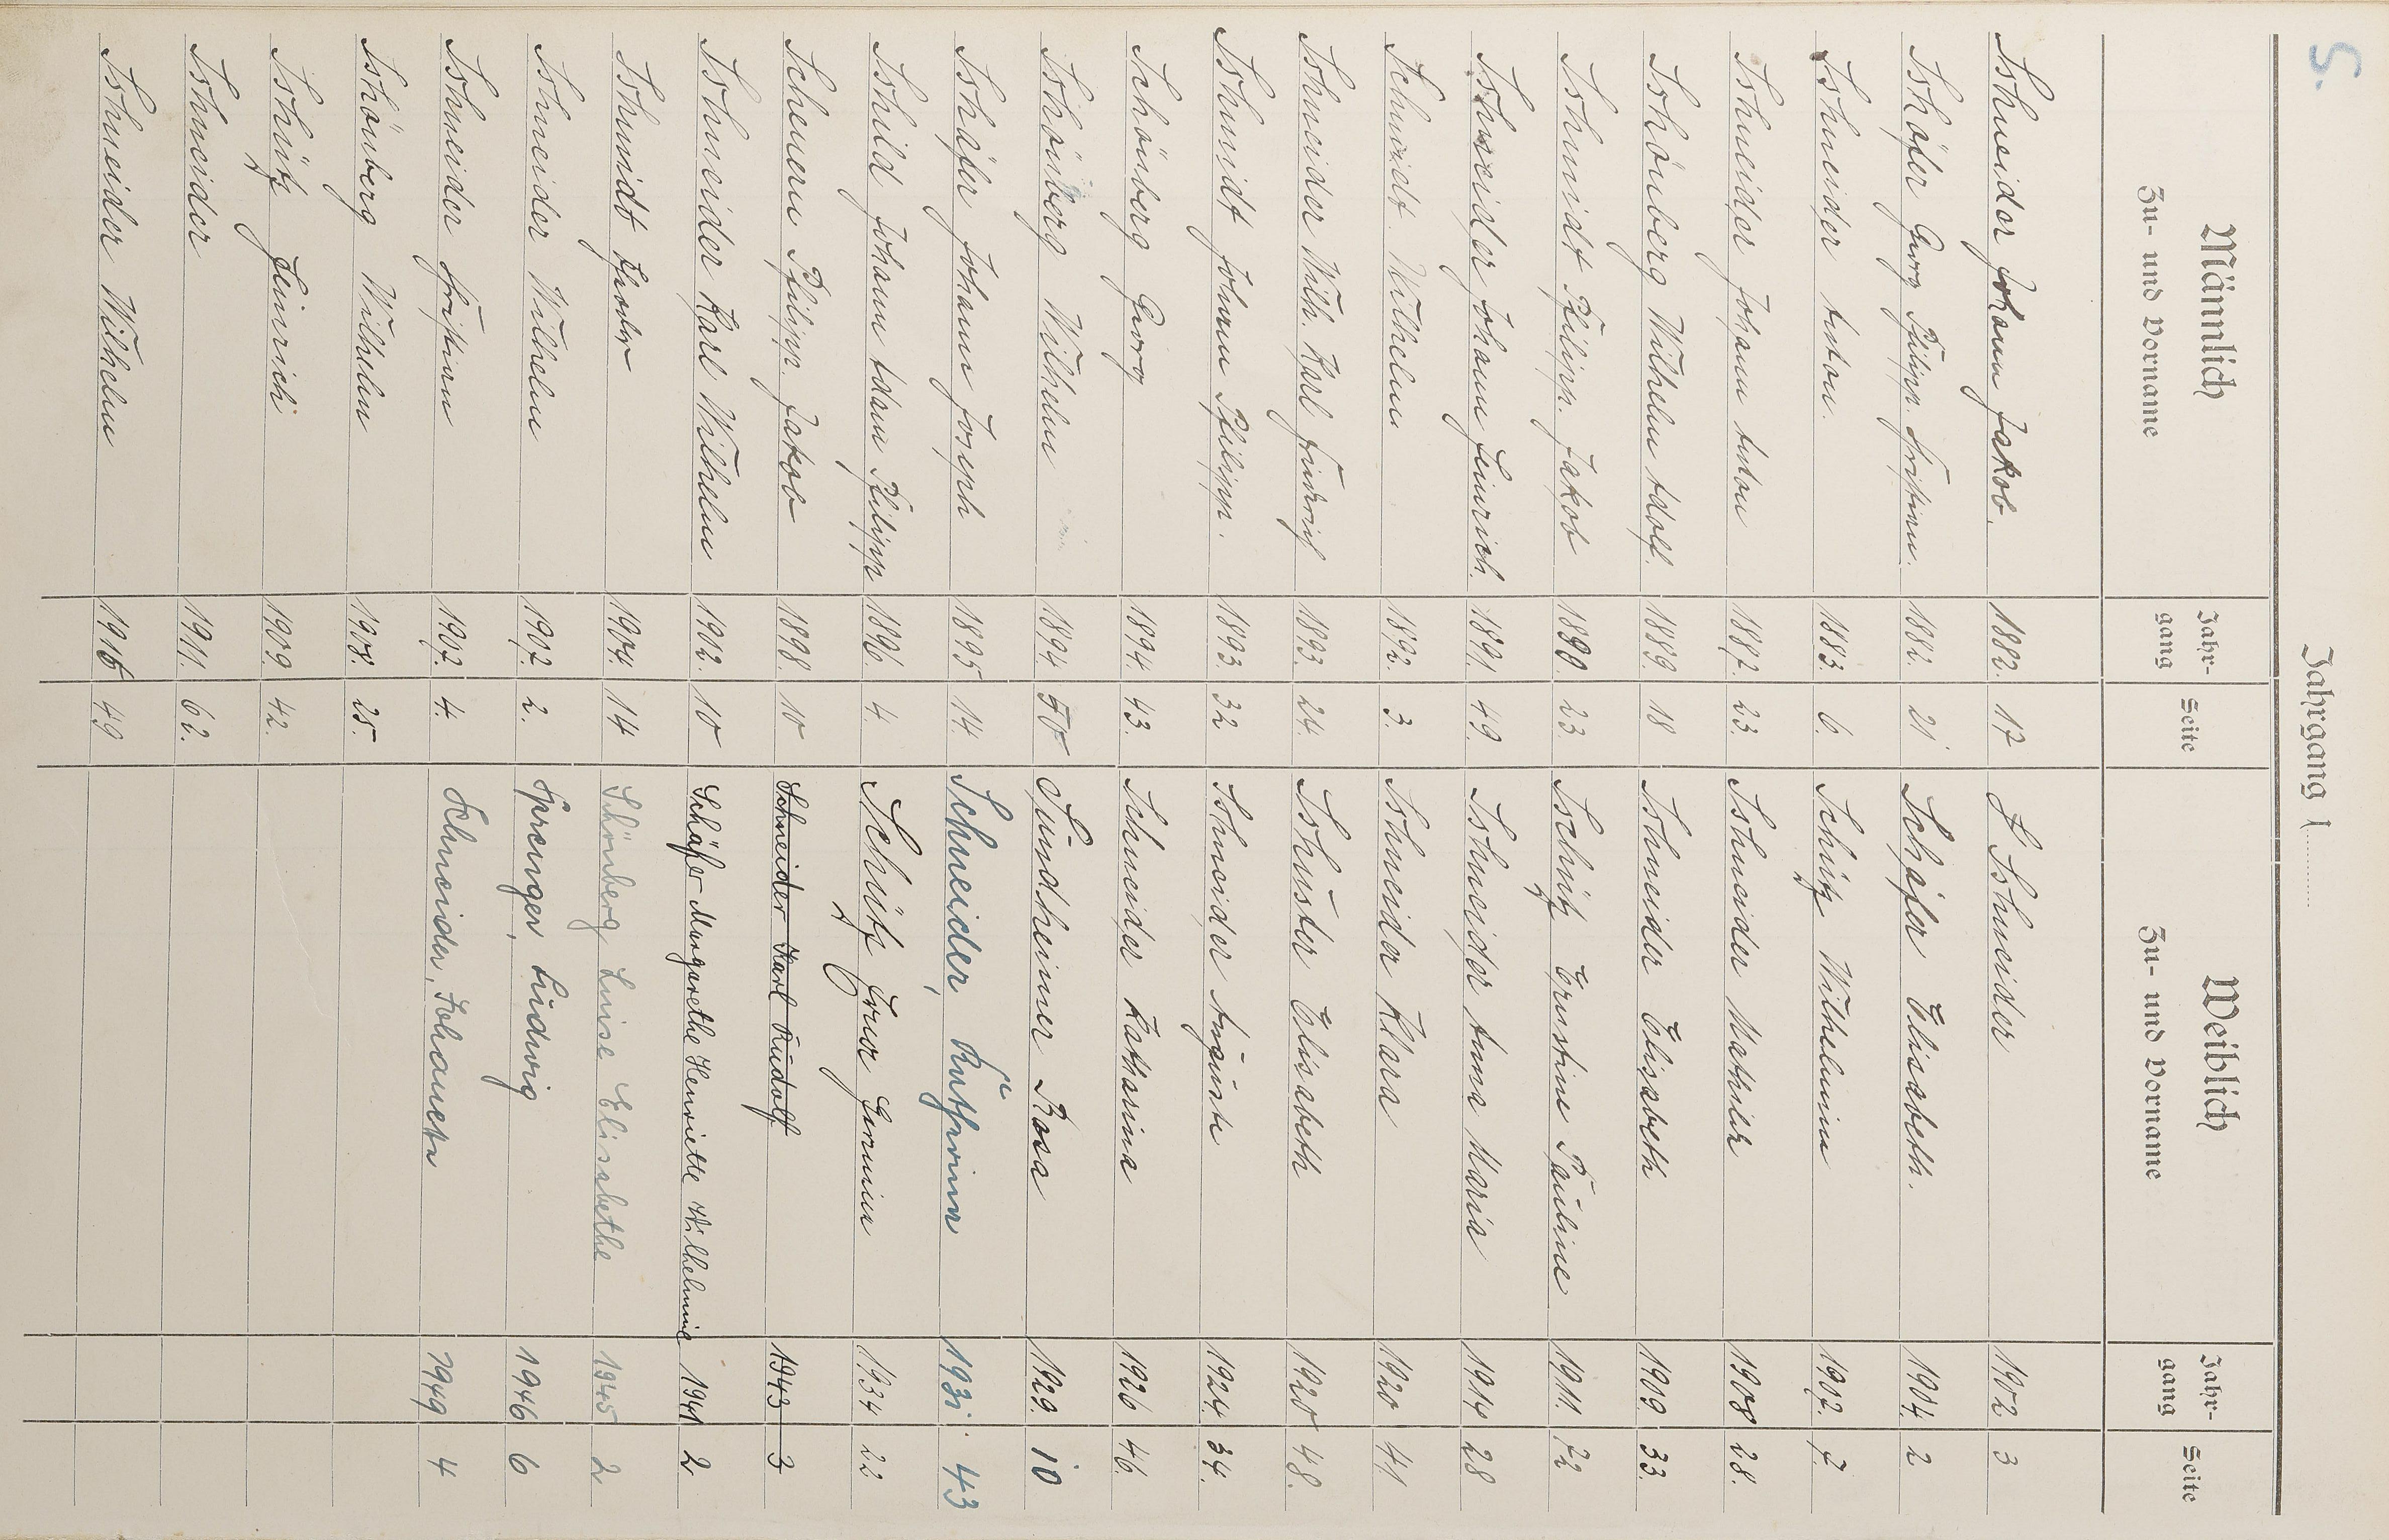 S.
Jahrgang 1
Männlich Weiblich
Zu- und Vorname Jahrgang Seite Zu- und Vorname Jahrgang Seite
Schneider Johann Jakob. 1882. 17 Schneider 1902 3
Schäfer Georg Philipp. Christian. 1882. 21 Schäfer Elisabeth. 1904. 2
Schneider Anton. 1883. 6. Schütz Wilhelmina 1907. 7.
Schneider Johann Anton 1887. 23. Schneider Mathilde 1908 28.
Schönberg Wilhelm Adolf. 1889. 18 Schneider Elisabeth 1909. 33.
Schmidt Philipp. Jakob 1890. 23. Schütz Ernstine Pauline 1911. 72
Schneider Johann Heinrich. 1891. 49. Schneider Anna Maria 1914 28
Schmidt. Wilhelm 1892. 3. Schneider Klara 1920 41
Schneider Wilh. Karl Friedrich 1893. 24. Schuster Elisabeth 1920 48.
Schmidt Johann Philipp. 1893. 32 Schneider Auguste 1924. 34.
Schönberg Georg 1894. 43. Schneider Katharina 1926 46.
Schönberg Wilhelm 1894 50 Sundheimer Rosa 1929. 10
Schäfer Johann Joseph 1895 14. Schneider, Kathrina 1931. 43
Schild Johann Adam Philipp 1896. 4. Schütz Frau Hermine 1934 22
Scheuern Philipp. Jakob 1898. 10 Schneider Karl Rudolf 1943 3
Schneider Karl Wilhelm 1902. 10 Schäfer Margarethe Henriette Wilhelmine 1941 2
Schmidt 1904. 14 Schönberg Luise Elisabethe 1945 2
Schneider Wilhelm 1907. 2. Sprenger, Ludwig 1946 6
Schneider Christian 1907. 4. Schneider, Johannetta 1949 4
Schönberg Wilhelm 1908. 25.
Schütz Heinrich 1909. 42.
Schneider 1911. 62.
Schneider Wilhelm 1916 49